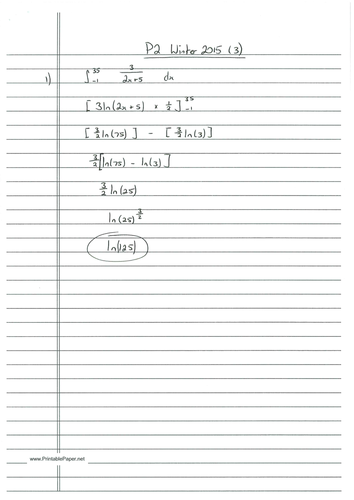 P2 Winter 2015 (3)
1) ∫₋₁³⁵ 3/(2x+5) dx
[3ln(2x+5) × ½]₋₁³⁵
[3/2 ln(75)] - [3/2 ln(3)]
3/2[ln(75) - ln(3)]
3/2 ln(25)
ln(25)^(3/2)
ln(125)
www.PrintablePaper.net